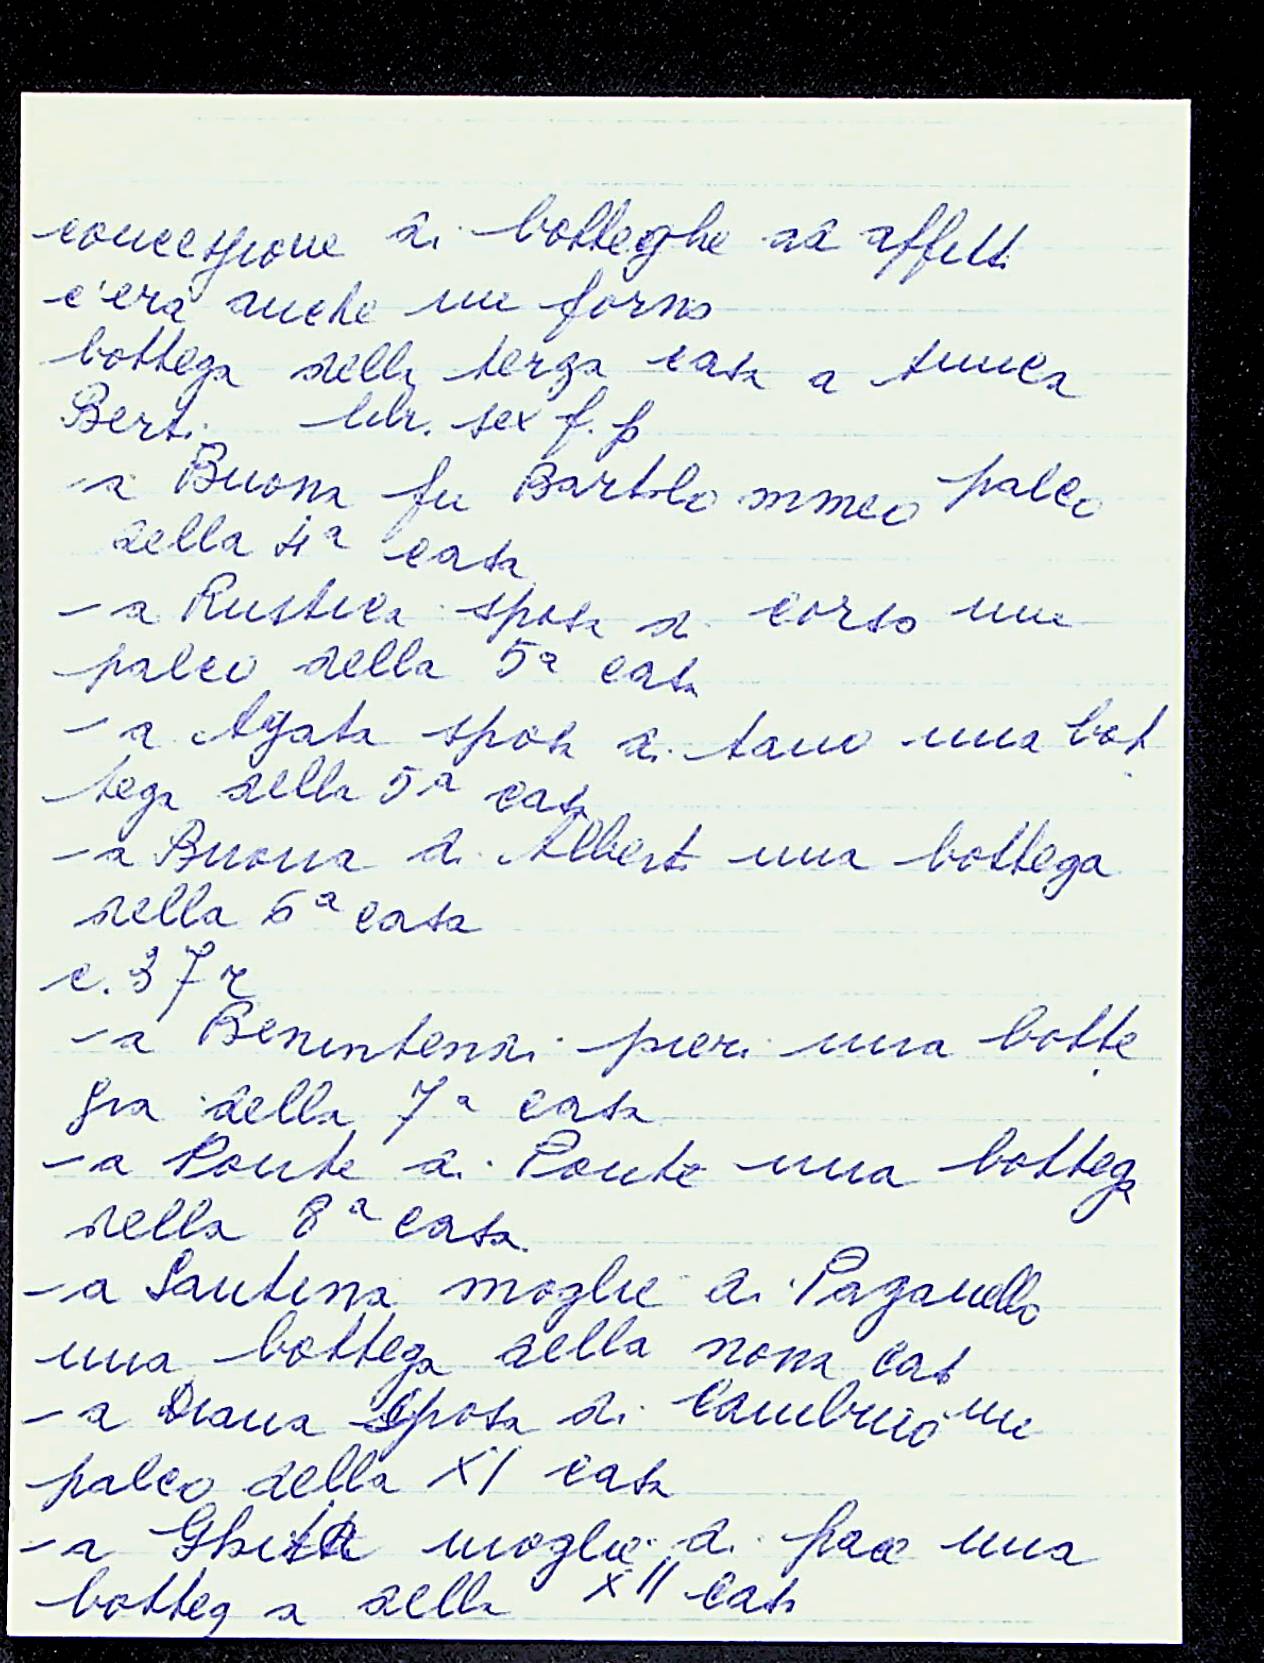 concessione di botteghe ad affitt
c'era anche un forno
bottega della terza casa a
Berti libr. sex f. p
- a Buona fu Bartolommeo palco
della 4ª casa
- a Rustica sposa di corso un
palco della 5ª casa
- a Agata sposa di tano una bot
tega della 5ª casa
- a Buona di Alberti una bottega
della 6ª casa
c. 37 r
- a Benintendi pieri una botte
ga della 7ª casa
- a Ponte di Ponte una bottega
della 8ª casa
- a Santina moglie di Paganello
una bottega della nona casa
- a Diana sposa di un
palco della XI casa
- a Ghita moglie di pace una
bottega della XII casa